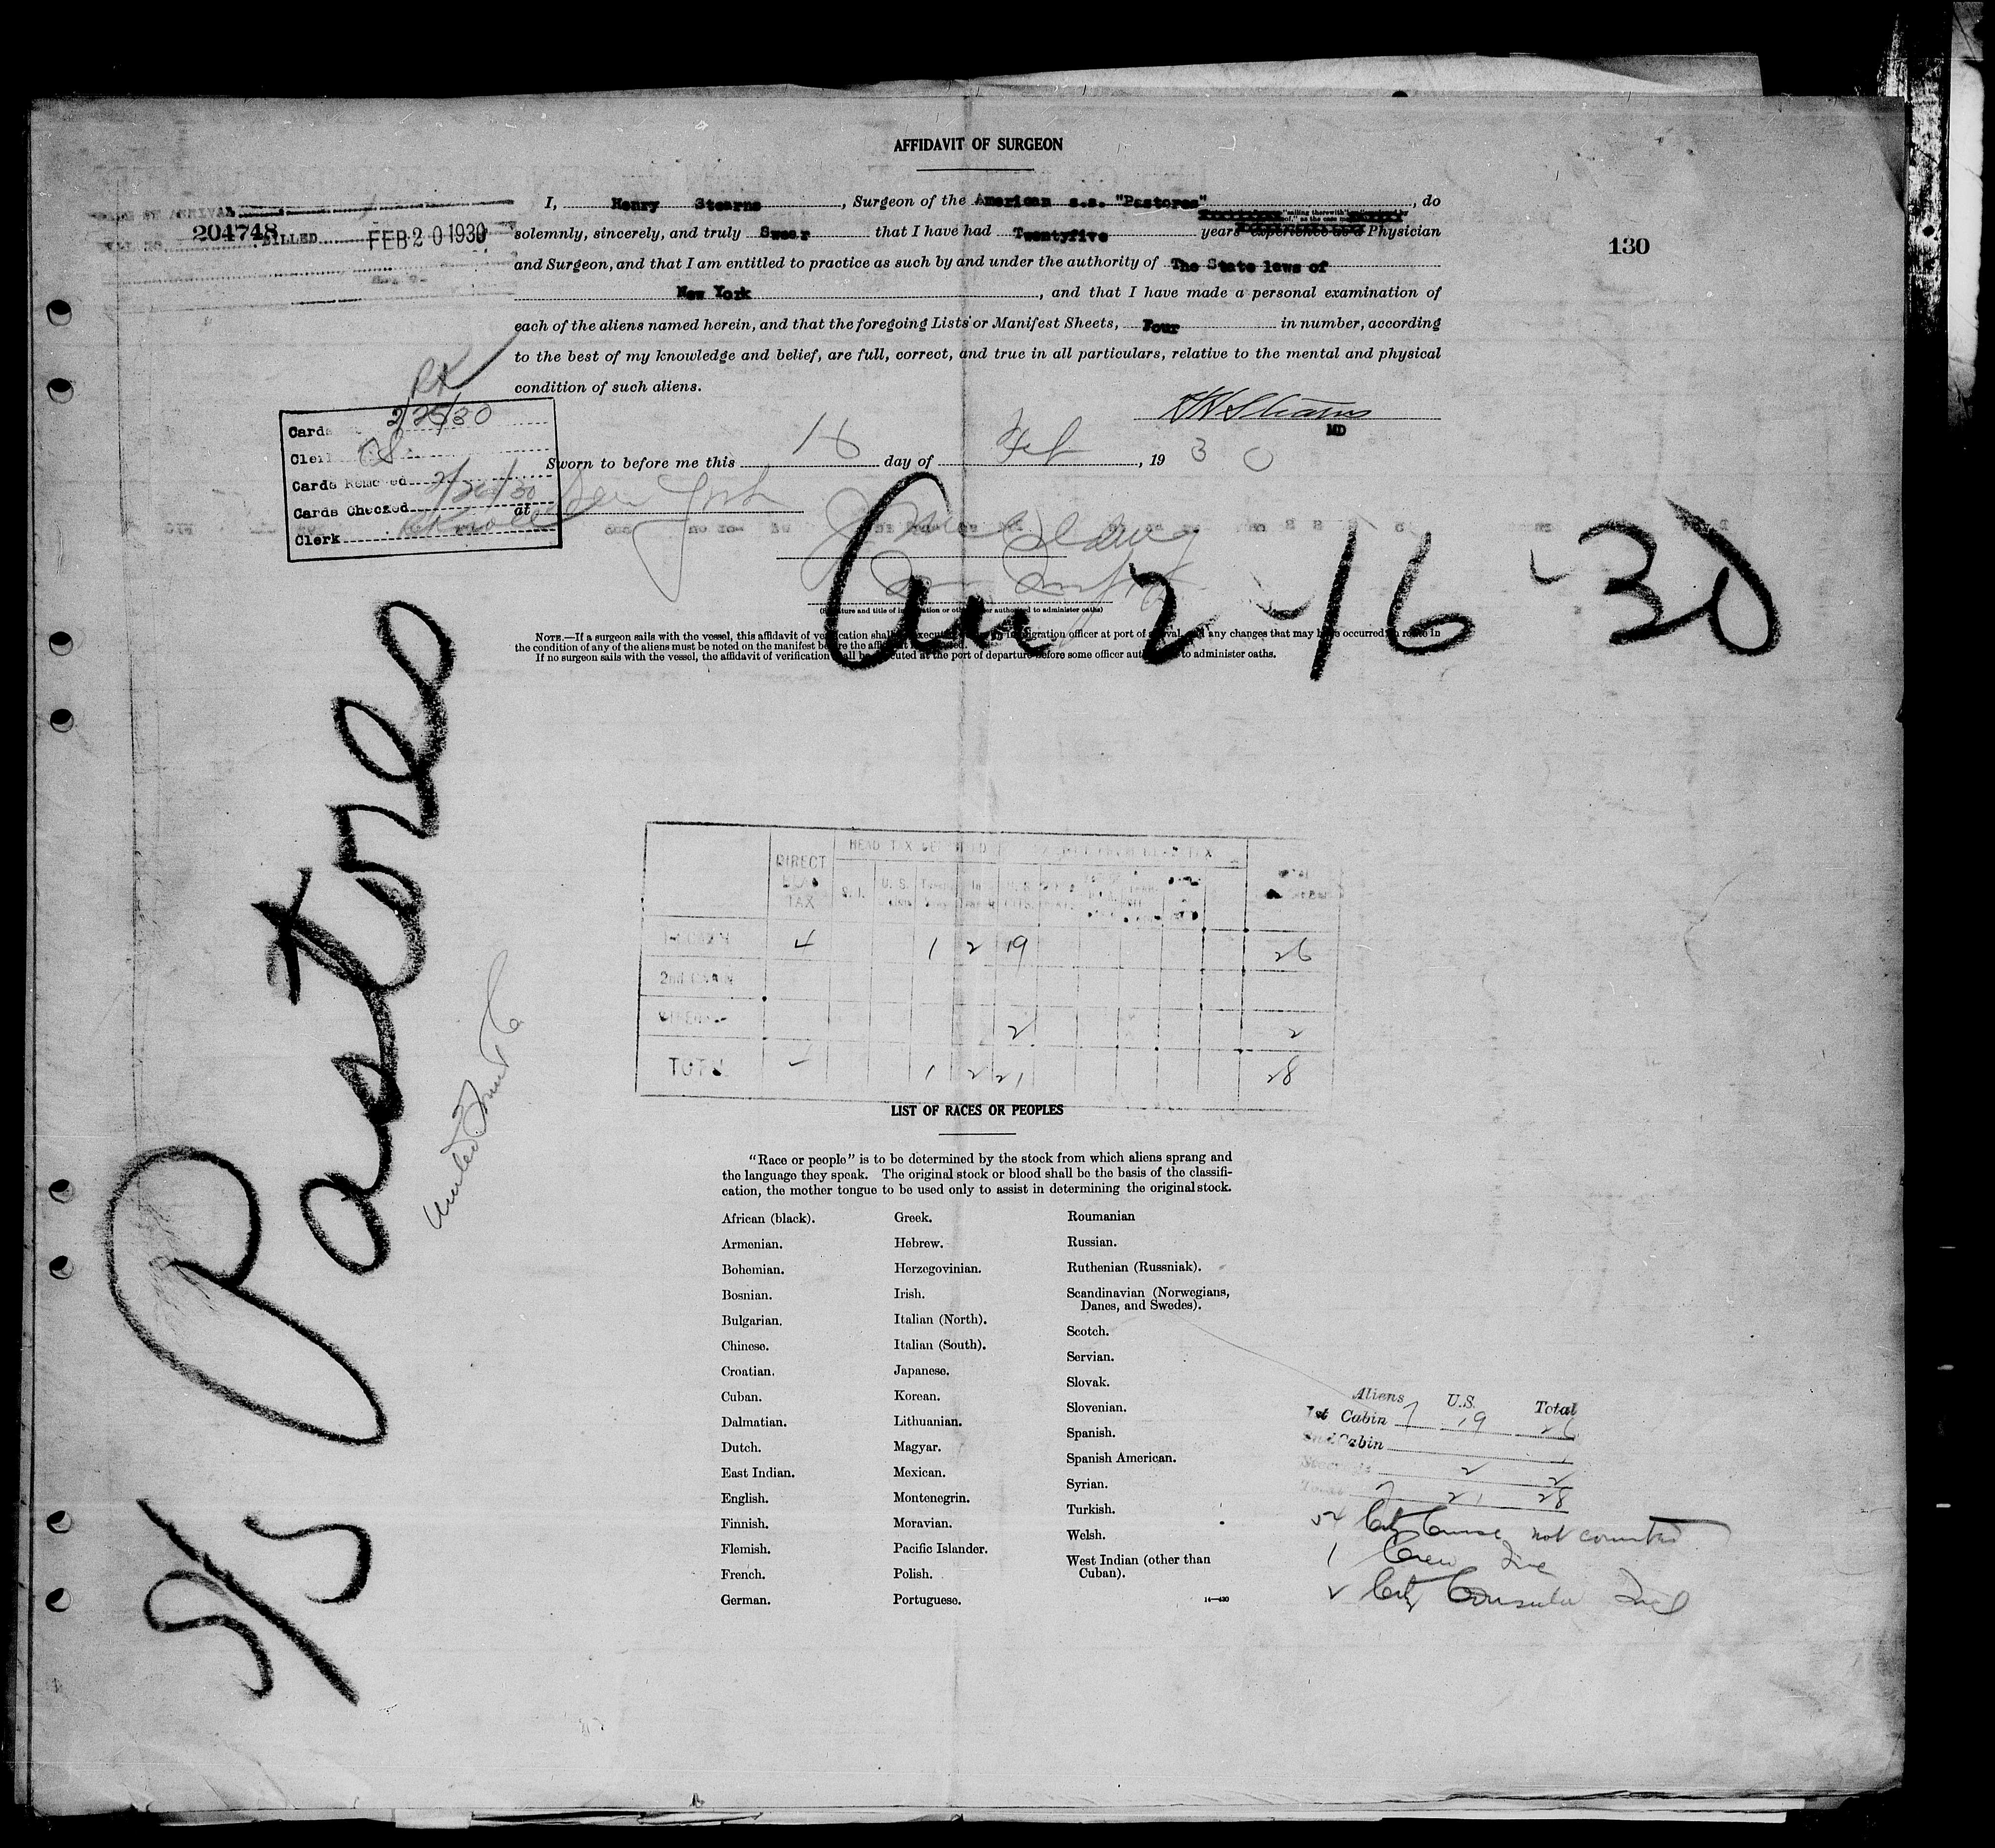 AFFIDAVIT OF SURGEON
I, Henry Stearns, Surgeon of the American s.s. "Pastores", do
solemnly, sincerely, and truly Swear that I have had Twentyfive years experience as a Physician
and Surgeon, and that I am entitled to practice as such by and under the authority of The State laws of
New York, and that I have made a personal examination of
each of the aliens named herein, and that the foregoing Lists or Manifest Sheets, Four in number, according
to the best of my knowledge and belief, are full, correct, and true in all particulars, relative to the mental and physical
condition of such aliens.
ARRIVAL
204748 BILLED FEB 20 1930
130
MD
Sworn to before me this 16 day of Feb, 1930
at New York
Cards 2/25/30
Clerk
Cards Removed 2/26/30
Cards Checked
Clerk
Arr 2-16-30
(Signature and title of immigration or other officer authorized to administer oaths)
NOTE.—If a surgeon sails with the vessel, this affidavit of verification shall be executed before an immigration officer at port of arrival, and any changes that may have occurred en route in
the condition of any of the aliens must be noted on the manifest before the affidavit is executed.
If no surgeon sails with the vessel, the affidavit of verification shall be executed at the port of departure before some officer authorized to administer oaths.
S/S Pastores
United Fruit Co
DIRECT HEAD TAX
S.I. U.S.
1st CABIN 4 1 2 19 26
2nd CABIN
2 2
TOTAL 1 2 21 28
LIST OF RACES OR PEOPLES
"Race or people" is to be determined by the stock from which aliens sprang and
the language they speak. The original stock or blood shall be the basis of the classifi-
cation, the mother tongue to be used only to assist in determining the original stock.
African (black).
Armenian.
Bohemian.
Bosnian.
Bulgarian.
Chinese.
Croatian.
Cuban.
Dalmatian.
Dutch.
East Indian.
English.
Finnish.
Flemish.
French.
German.
Greek.
Hebrew.
Herzegovinian.
Irish.
Italian (North).
Italian (South).
Japanese.
Korean.
Lithuanian.
Magyar.
Mexican.
Montenegrin.
Moravian.
Pacific Islander.
Polish.
Portuguese.
Roumanian
Russian.
Ruthenian (Russniak).
Scandinavian (Norwegians,
Danes, and Swedes).
Scotch.
Servian.
Slovak.
Slovenian.
Spanish.
Spanish American.
Syrian.
Turkish.
Welsh.
West Indian (other than
Cuban).
14—430
Aliens U.S. Total
1st Cabin 7 19 26
2nd Cabin
Steerage 2 2
Total 7 21 28
54 Cit Cruise not counted
1 Crew
2 Cit